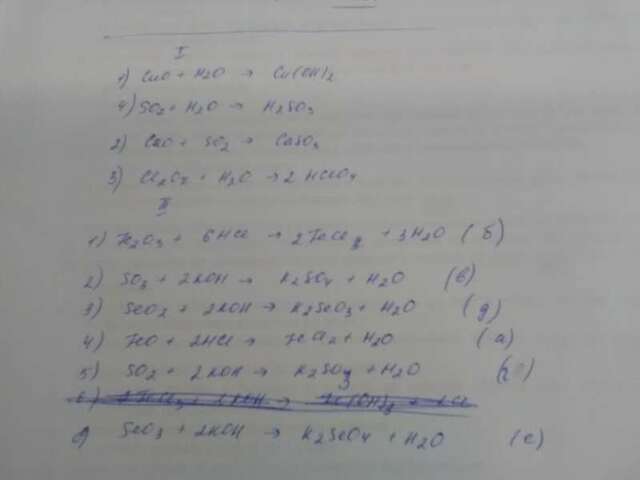 I
1) CuO + H2O → Cu(OH)2
4) SO2 + H2O → H2SO3
2) CaO + SO2 → CaSO3
3) Cl2O7 + H2O → 2 HClO4
II
1) Fe2O3 + 6HCl → 2FeCl3 + 3H2O (б)
2) SO3 + 2KOH → K2SO4 + H2O (в)
3) SeO2 + 2KOH → K2SeO3 + H2O (д)
4) FeO + 2HCl → FeCl2 + H2O (а)
5) SO2 + 2KOH → K2SO3 + H2O
6)
SeO3 + 2KOH → K2SeO4 + H2O (е)